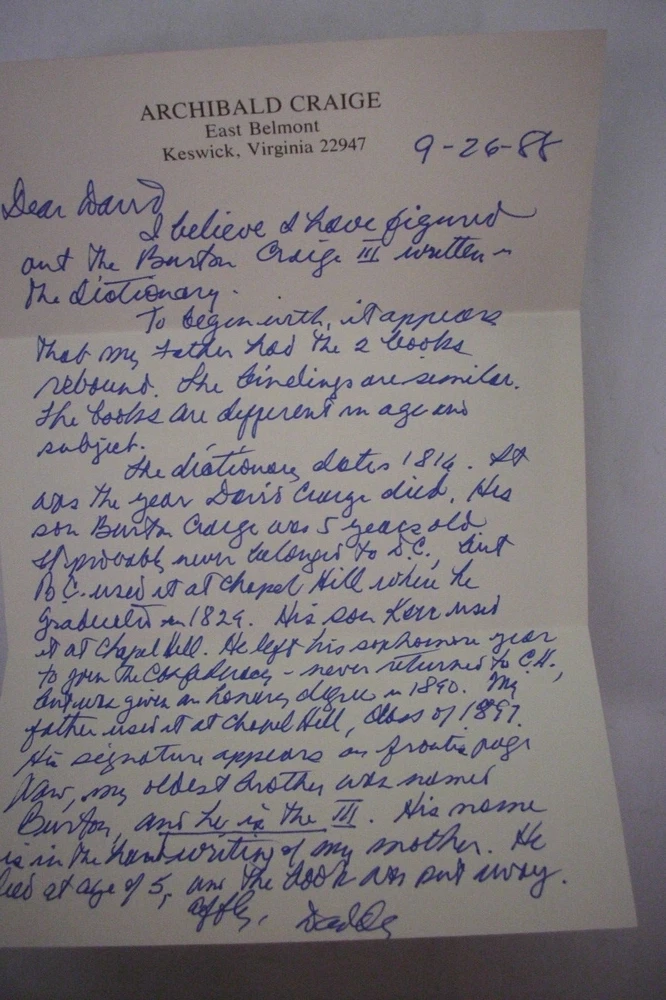 ARCHIBALD CRAIGE
East Belmont
Keswick, Virginia 22947
9-26-88
Dear David
I believe I have figured
out the Burton Craige III written in
the dictionary.
To begin with, it appears
that my father had the 2 books
rebound. The bindings are similar.
The books are different in age and
subject.
The dictionary dates 1814. It
was the year David Craige died. His
son Burton Craige was 5 years old
It probably never belonged to D.C., but
B.C. used it at Chapel Hill when he
graduated in 1829. His son Kerr used
it at Chapel Hill. He left his sophomore year
to join the Confederacy - never returned to C.H.,
but was given an honorary degree in 1890. My
father used it at Chapel Hill, Class of 1897.
His signature appears on frontis page
Now, my oldest brother was named
Burton, and he is the III. His name
is in the handwriting of my mother. He
died at age of 5, and the book was put away.
affly, Daddy